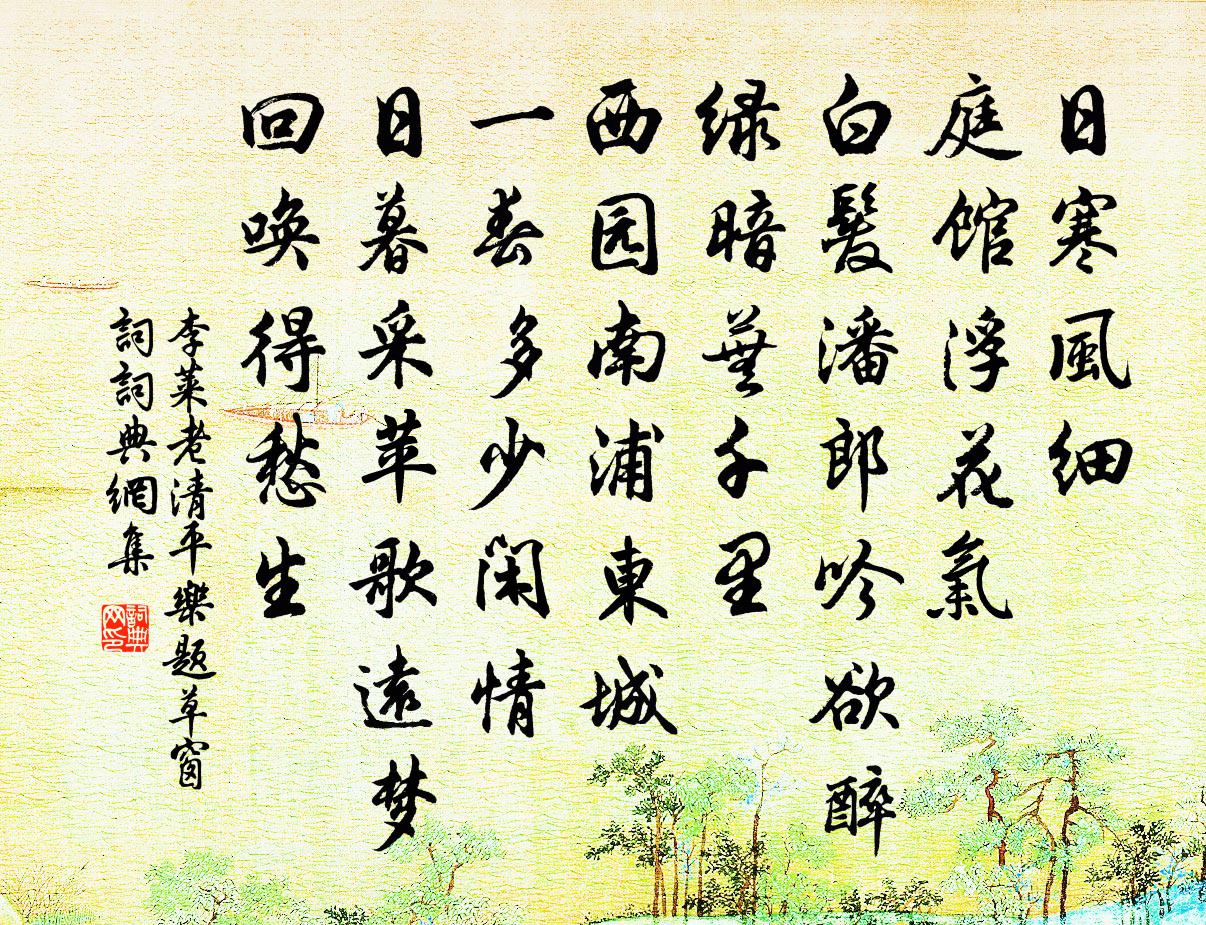 日寒風细
庭馆浮花氣
白髮潘郎吟欲醉
绿暗蘼芜千里
西园南浦東城
一春多少闲情
日暮采苹歌遠梦
回唤得愁生
李莱老清平樂题草窗
詞詞典網集
詞典网印